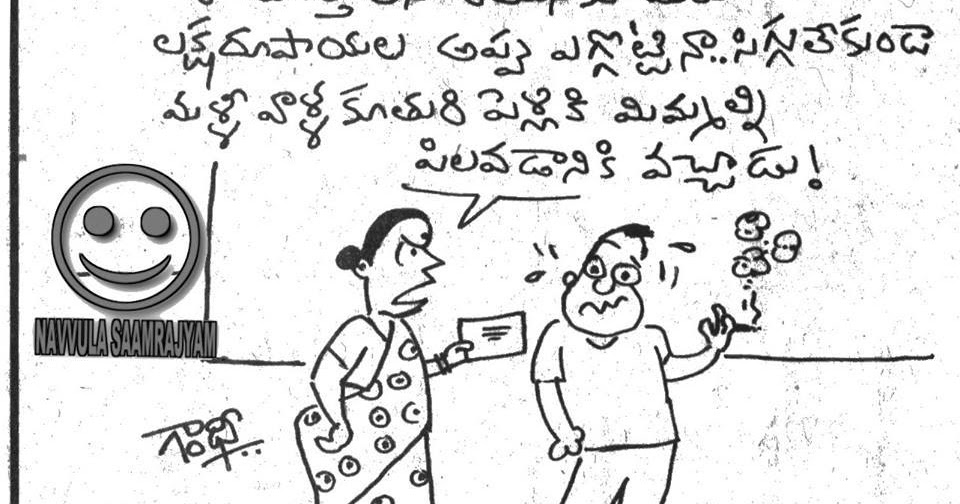 లక్షరూపాయల అప్పు ఎగ్గొట్టినా..సిగ్గులేకుండా
మళ్ళీ వాళ్ళ కూతురి పెళ్లికి మిమ్మల్ని
పిలవడానికి వచ్చాడు!
NAVVULA SAAMRAJYAM
గాంధీ..